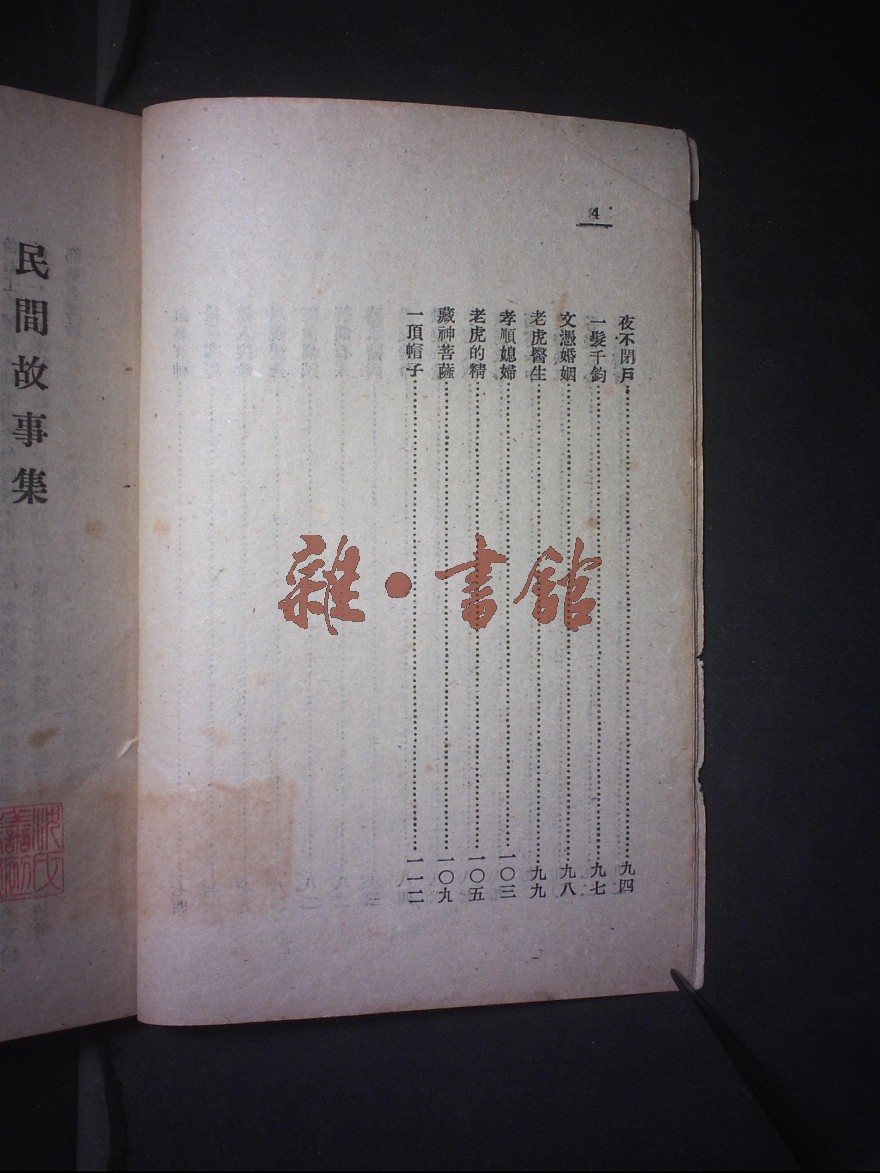 4
夜不閉戶……九四
一髮千鈞……九七
文憑婚姻……九八
老虎醫生……九九
孝順媳婦……一〇三
老虎的精……一〇五
藏神菩薩……一〇九
一頂帽子……一一二
民間故事集
雜·書館